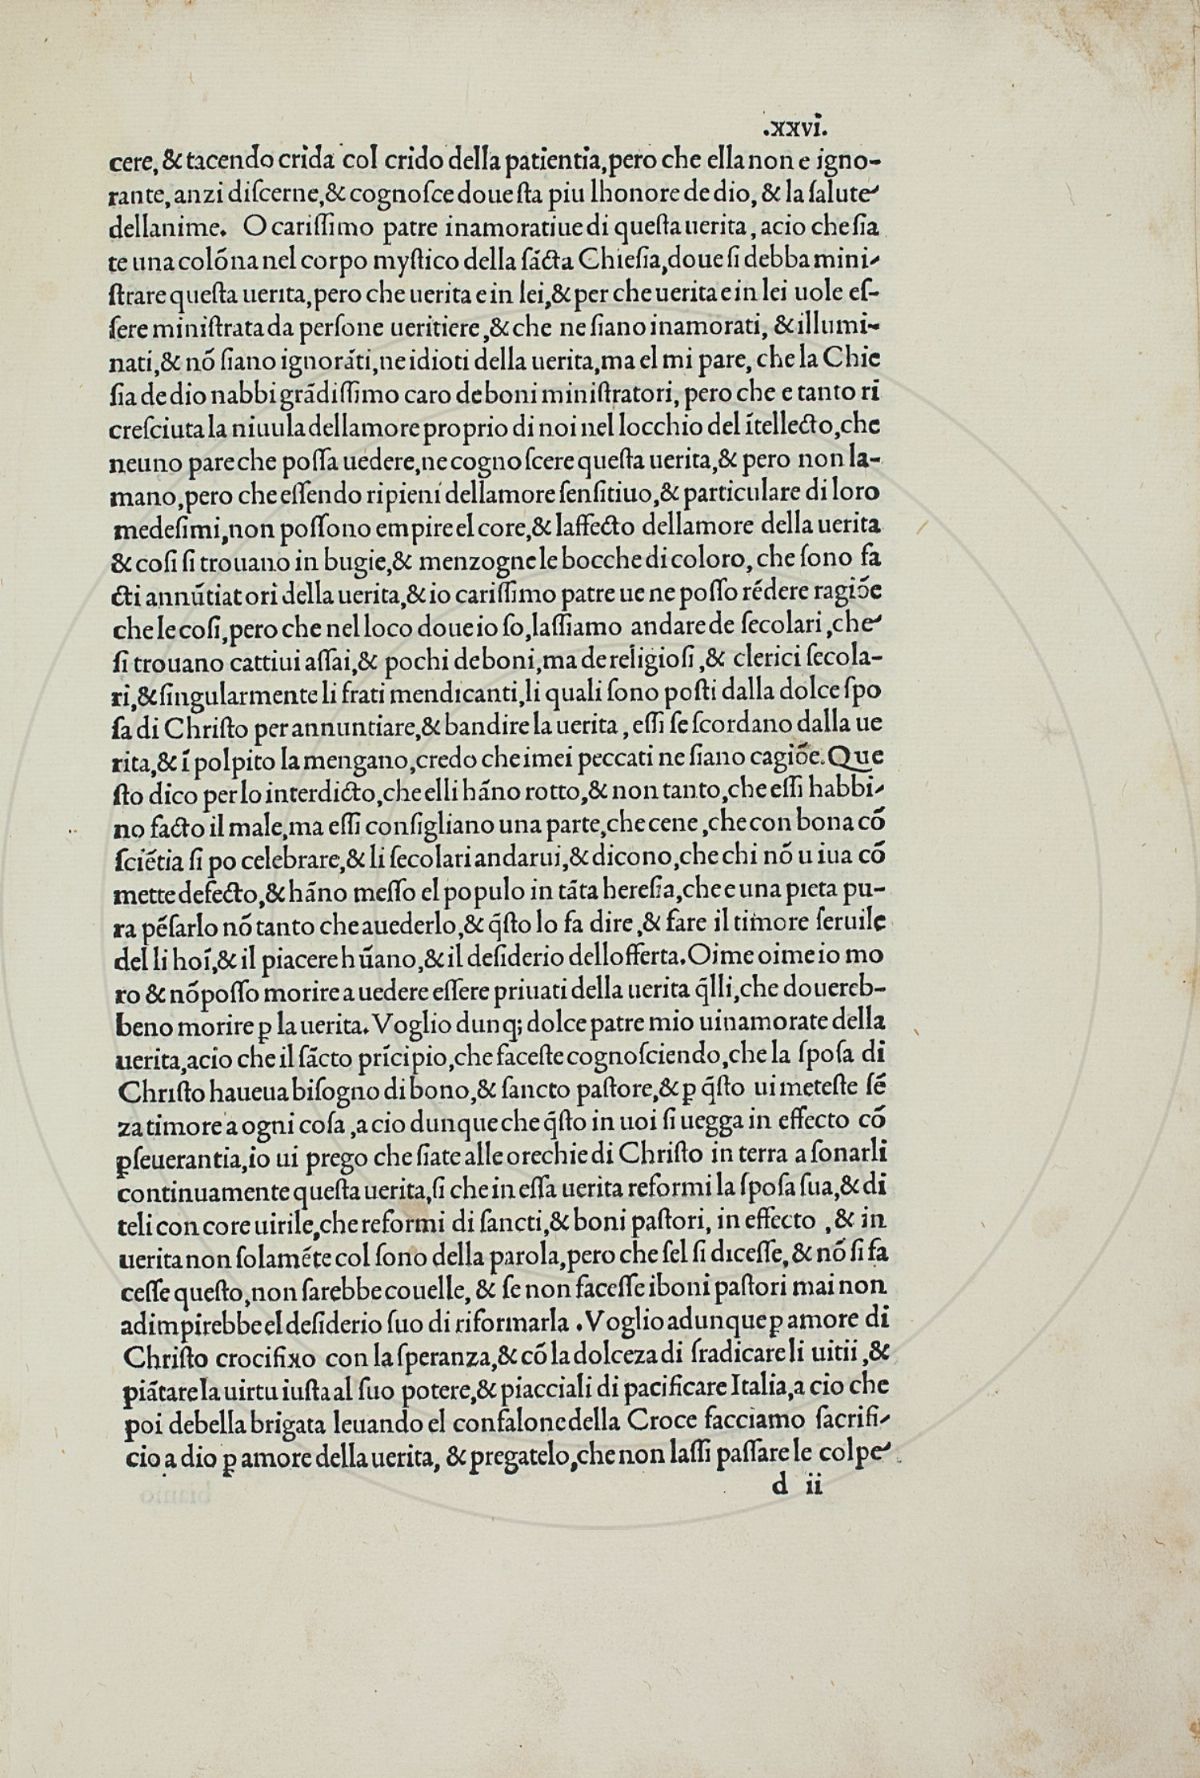 .xxvi.
cere, & tacendo crida col crido della patientia, pero che ella non e igno-
rante, anzi diſcerne, & cognoſce doue ſta piu lhonore de dio, & la ſalute
dellanime. O cariſſimo patre inamoratiue di queſta uerita, acio che ſia
te una colōna nel corpo myſtico della ſācta Chieſia, doue ſi debba mini-
ſtrare queſta uerita, pero che uerita e in lei, & per che uerita e in lei uole eſ-
ſere miniſtrata da perſone ueritiere, & che ne ſiano inamorati, & illumi-
nati, & nō ſiano ignorāti, ne idioti della uerita, ma el mi pare, che la Chie
ſia de dio nabbi grādiſſimo caro de boni miniſtratori, pero che e tanto ri
creſciuta la niuula dellamore proprio di noi nel locchio del ītellecto, che
neuno pare che poſſa uedere, ne cognoſcere queſta uerita, & pero non la-
mano, pero che eſſendo ripieni dellamore ſenſitiuo, & particulare di loro
medeſimi, non poſſono empire el core, & laffecto dellamore della uerita
& coſi ſi trouano in bugie, & menzogne le bocche di coloro, che ſono fa
cti annūtiatori della uerita, & io cariſſimo patre ue ne poſſo rēdere ragiōe
che le coſi, pero che nel loco doue io ſo, laſſiamo andare de ſecolari, che
ſi trouano cattiui aſſai, & pochi de boni, ma de religioſi, & clerici ſecola-
ri, & ſingularmente li frati mendicanti, li quali ſono poſti dalla dolce ſpo
ſa di Chriſto per annuntiare, & bandire la uerita, eſſi ſe ſcordano dalla ue
rita, & ī polpito la mengano, credo che imei peccati ne ſiano cagiōe. Que
ſto dico per lo interdicto, che elli hāno rotto, & non tanto, che eſſi habbi-
no facto il male, ma eſſi conſigliano una parte, che cene, che con bona cō
ſciētia ſi po celebrare, & li ſecolari andarui, & dicono, che chi nō u iua cō
mette defecto, & hāno meſſo el populo in tāta hereſia, che e una pieta pu-
ra pēſarlo nō tanto che a uederlo, & q̄ſto lo fa dire, & fare il timore ſeruile
del li hoī, & il piacere hūano, & il deſiderio dellofferta. Oime oime io mo
ro & nō poſſo morire a uedere eſſere priuati della uerita q̄lli, che douereb-
beno morire ꝑ la uerita. Voglio dunq; dolce patre mio uinamorate della
uerita, acio che il ſācto prīcipio, che faceſte cognoſciendo, che la ſpoſa di
Chriſto haueua biſogno di bono, & ſancto paſtore, & ꝑ q̄ſto ui meteſte ſē
za timore a ogni coſa, a cio dunque che q̄ſto in uoi ſi uegga in effecto cō
ꝑſeuerantia, io ui prego che ſiate alle orechie di Chriſto in terra a ſonarli
continuamente queſta uerita, ſi che in eſſa uerita reformi la ſpoſa ſua, & di
teli con core uirile, che reformi di ſancti, & boni paſtori, in effecto, & in
uerita non ſolamēte col ſono della parola, pero che ſel ſi diceſſe, & nō ſi fa
ceſſe queſto, non ſarebbe couelle, & ſe non faceſſe iboni paſtori mai non
adimpirebbe el deſiderio ſuo di riformarla. Voglio adunque ꝑ amore di
Chriſto crocifixo con la ſperanza, & cō la dolceza di ſradicare li uitii, &
piātare la uirtu iuſta al ſuo potere, & piacciali di pacificare Italia, a cio che
poi debella brigata leuando el confalone della Croce facciamo ſacrifi-
cio a dio ꝑ amore della uerita, & pregatelo, che non laſſi paſſare le colpe
d ii